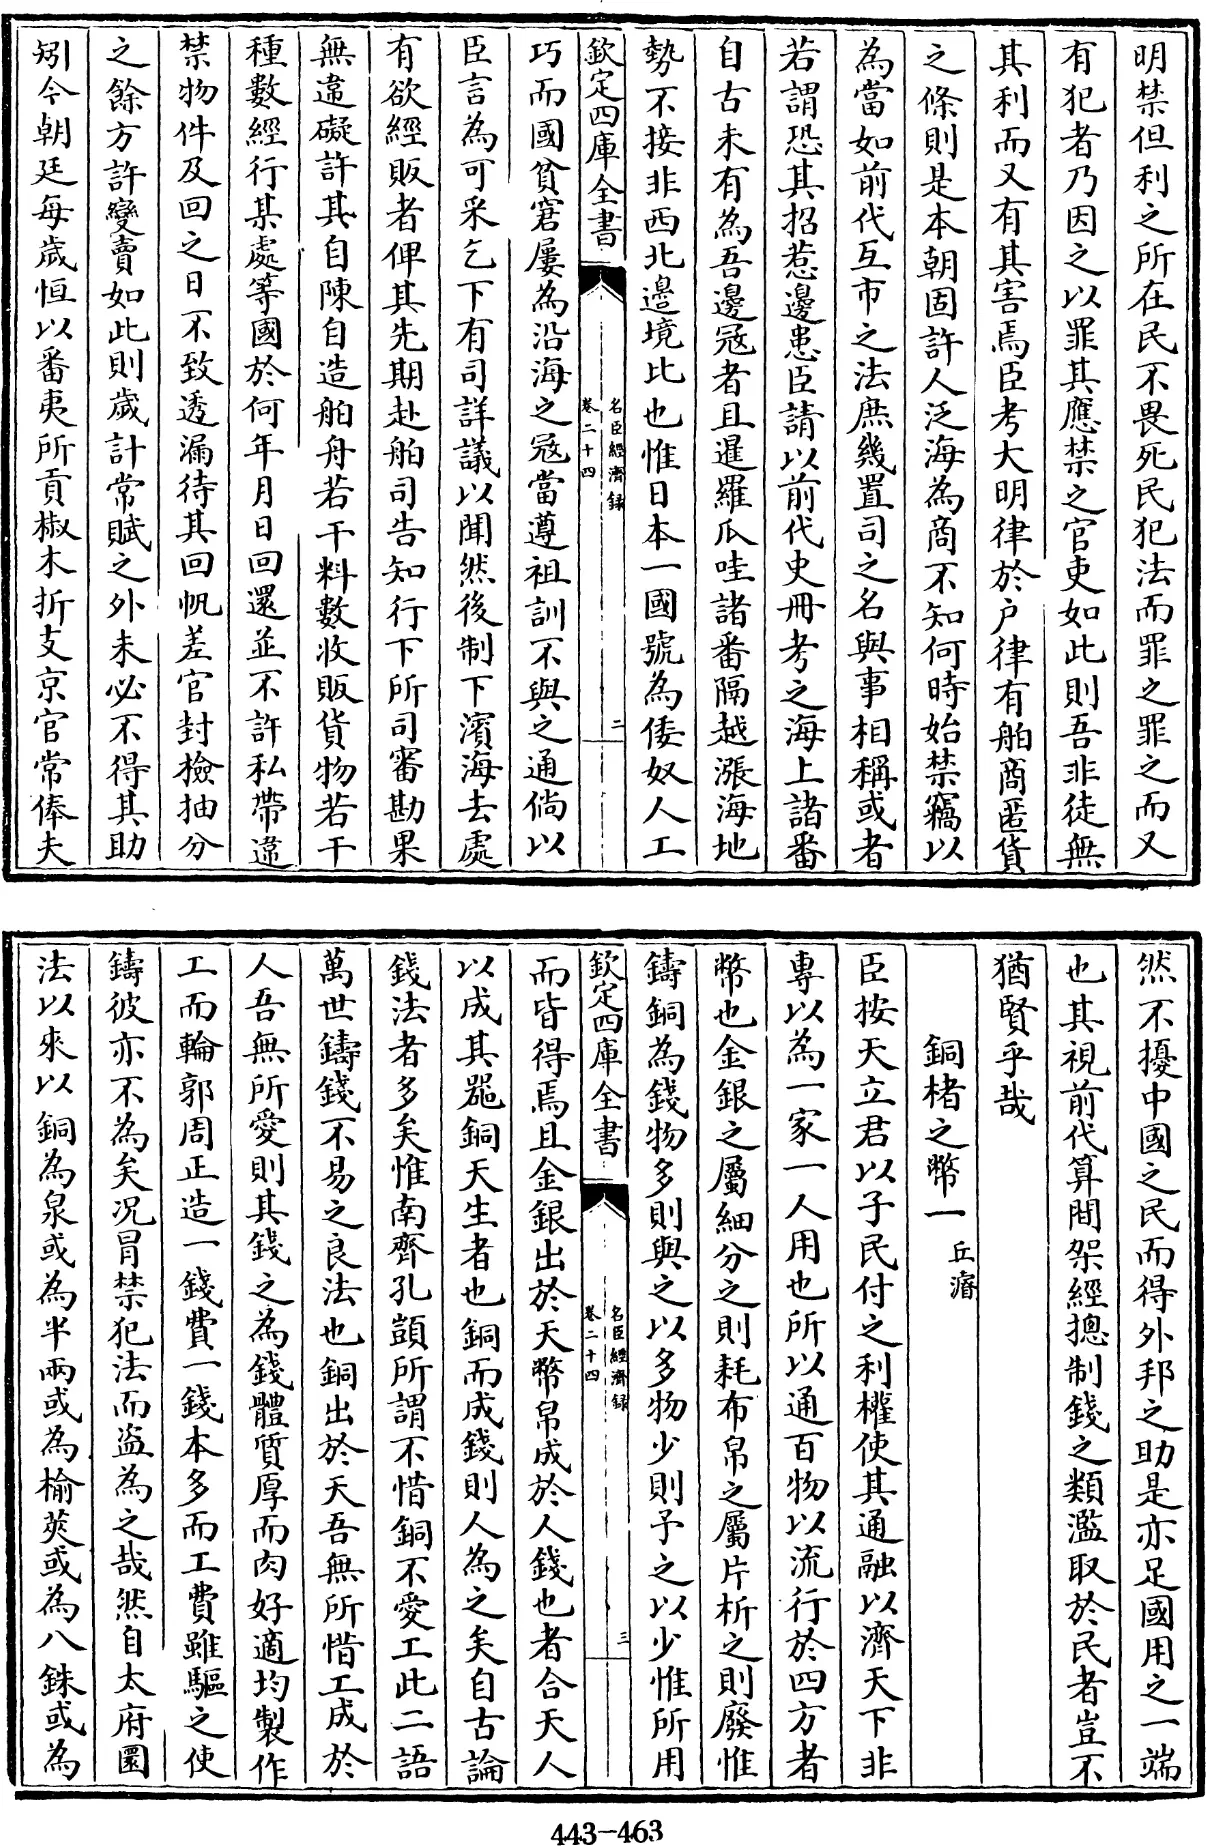 明禁但利之所在民不畏死民犯法而罪之罪之而又
有犯者乃因之以罪其應禁之官吏如此則吾非徒無
其利而又有其害焉臣考大明律於户律有舶商匿貨
之條則是本朝固許人泛海為商不知何時始禁竊以
為當如前代互市之法庶幾置司之名與事相稱或者
若謂恐其招惹邊患臣請以前代史冊考之海上諸番
自古未有為吾邊寇者且暹羅瓜哇諸番隔越漲海地
勢不接非西北邊境比也惟日本一國號為倭奴人工
欽定四庫全書
名臣經濟録
卷二十四
二
巧而國貧窘屢為沿海之寇當遵祖訓不與之通倘以
臣言為可采乞下有司詳議以聞然後制下濱海去處
有欲經販者俾其先期赴舶司告知行下所司審勘果
無違礙許其自陳自造舶舟若干料數收販貨物若干
種數經行某處等國於何年月日回還並不許私帶違
禁物件及回之日不致透漏待其回帆差官封檢抽分
之餘方許變賣如此則歲計常賦之外未必不得其助
矧今朝廷每歲恒以番夷所貢椒木折支京官常俸夫
然不擾中國之民而得外邦之助是亦足國用之一端
也其視前代算間架經總制錢之類濫取於民者豈不
猶賢乎哉
銅楮之幣一 丘濬
臣按天立君以子民付之利權使其通融以濟天下非
專以為一家一人用也所以通百物以流行於四方者
幣也金銀之屬細分之則耗布帛之屬片析之則廢惟
鑄銅為錢物多則與之以多物少則予之以少惟所用
欽定四庫全書
名臣經濟録
卷二十四
三
而皆得焉且金銀出於天幣帛成於人錢也者合天人
以成其噐銅天生者也銅而成錢則人為之矣自古論
錢法者多矣惟南齊孔顗所謂不惜銅不愛工此二語
萬世鑄錢不易之良法也銅出於天吾無所惜工成於
人吾無所愛則其錢之為錢體質厚而肉好適均製作
工而輪郭周正造一錢費一錢本多而工費雖驅之使
鑄彼亦不為矣况冒禁犯法而盗為之哉然自太府圜
法以來以銅為泉或為半兩或為榆莢或為八銖或為
443-463